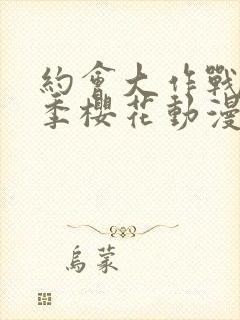 約會大作戰
季櫻花動漫
烏蒙